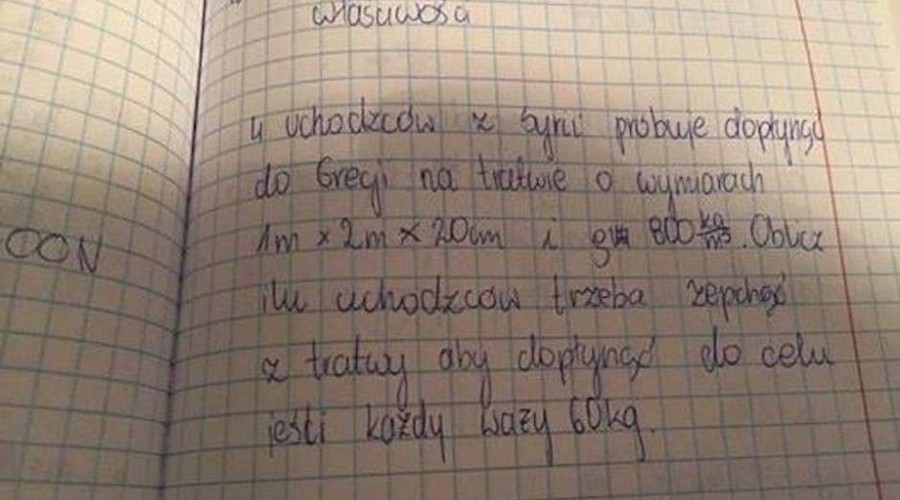 własuwość
OON
4 uchodźców z Syrii próbuje dopłynąć
do Grecji na tratwie o wymiarach
1m × 2m × 20cm i 800 kg/m³. Oblicz
ilu uchodźców trzeba zepchnąć
z tratwy aby dopłynąć do celu
jeśli każdy waży 60kg.